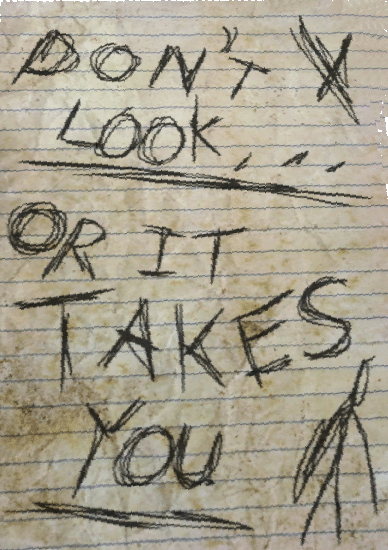 DON'T
LOOK...
OR IT
TAKES
YOU